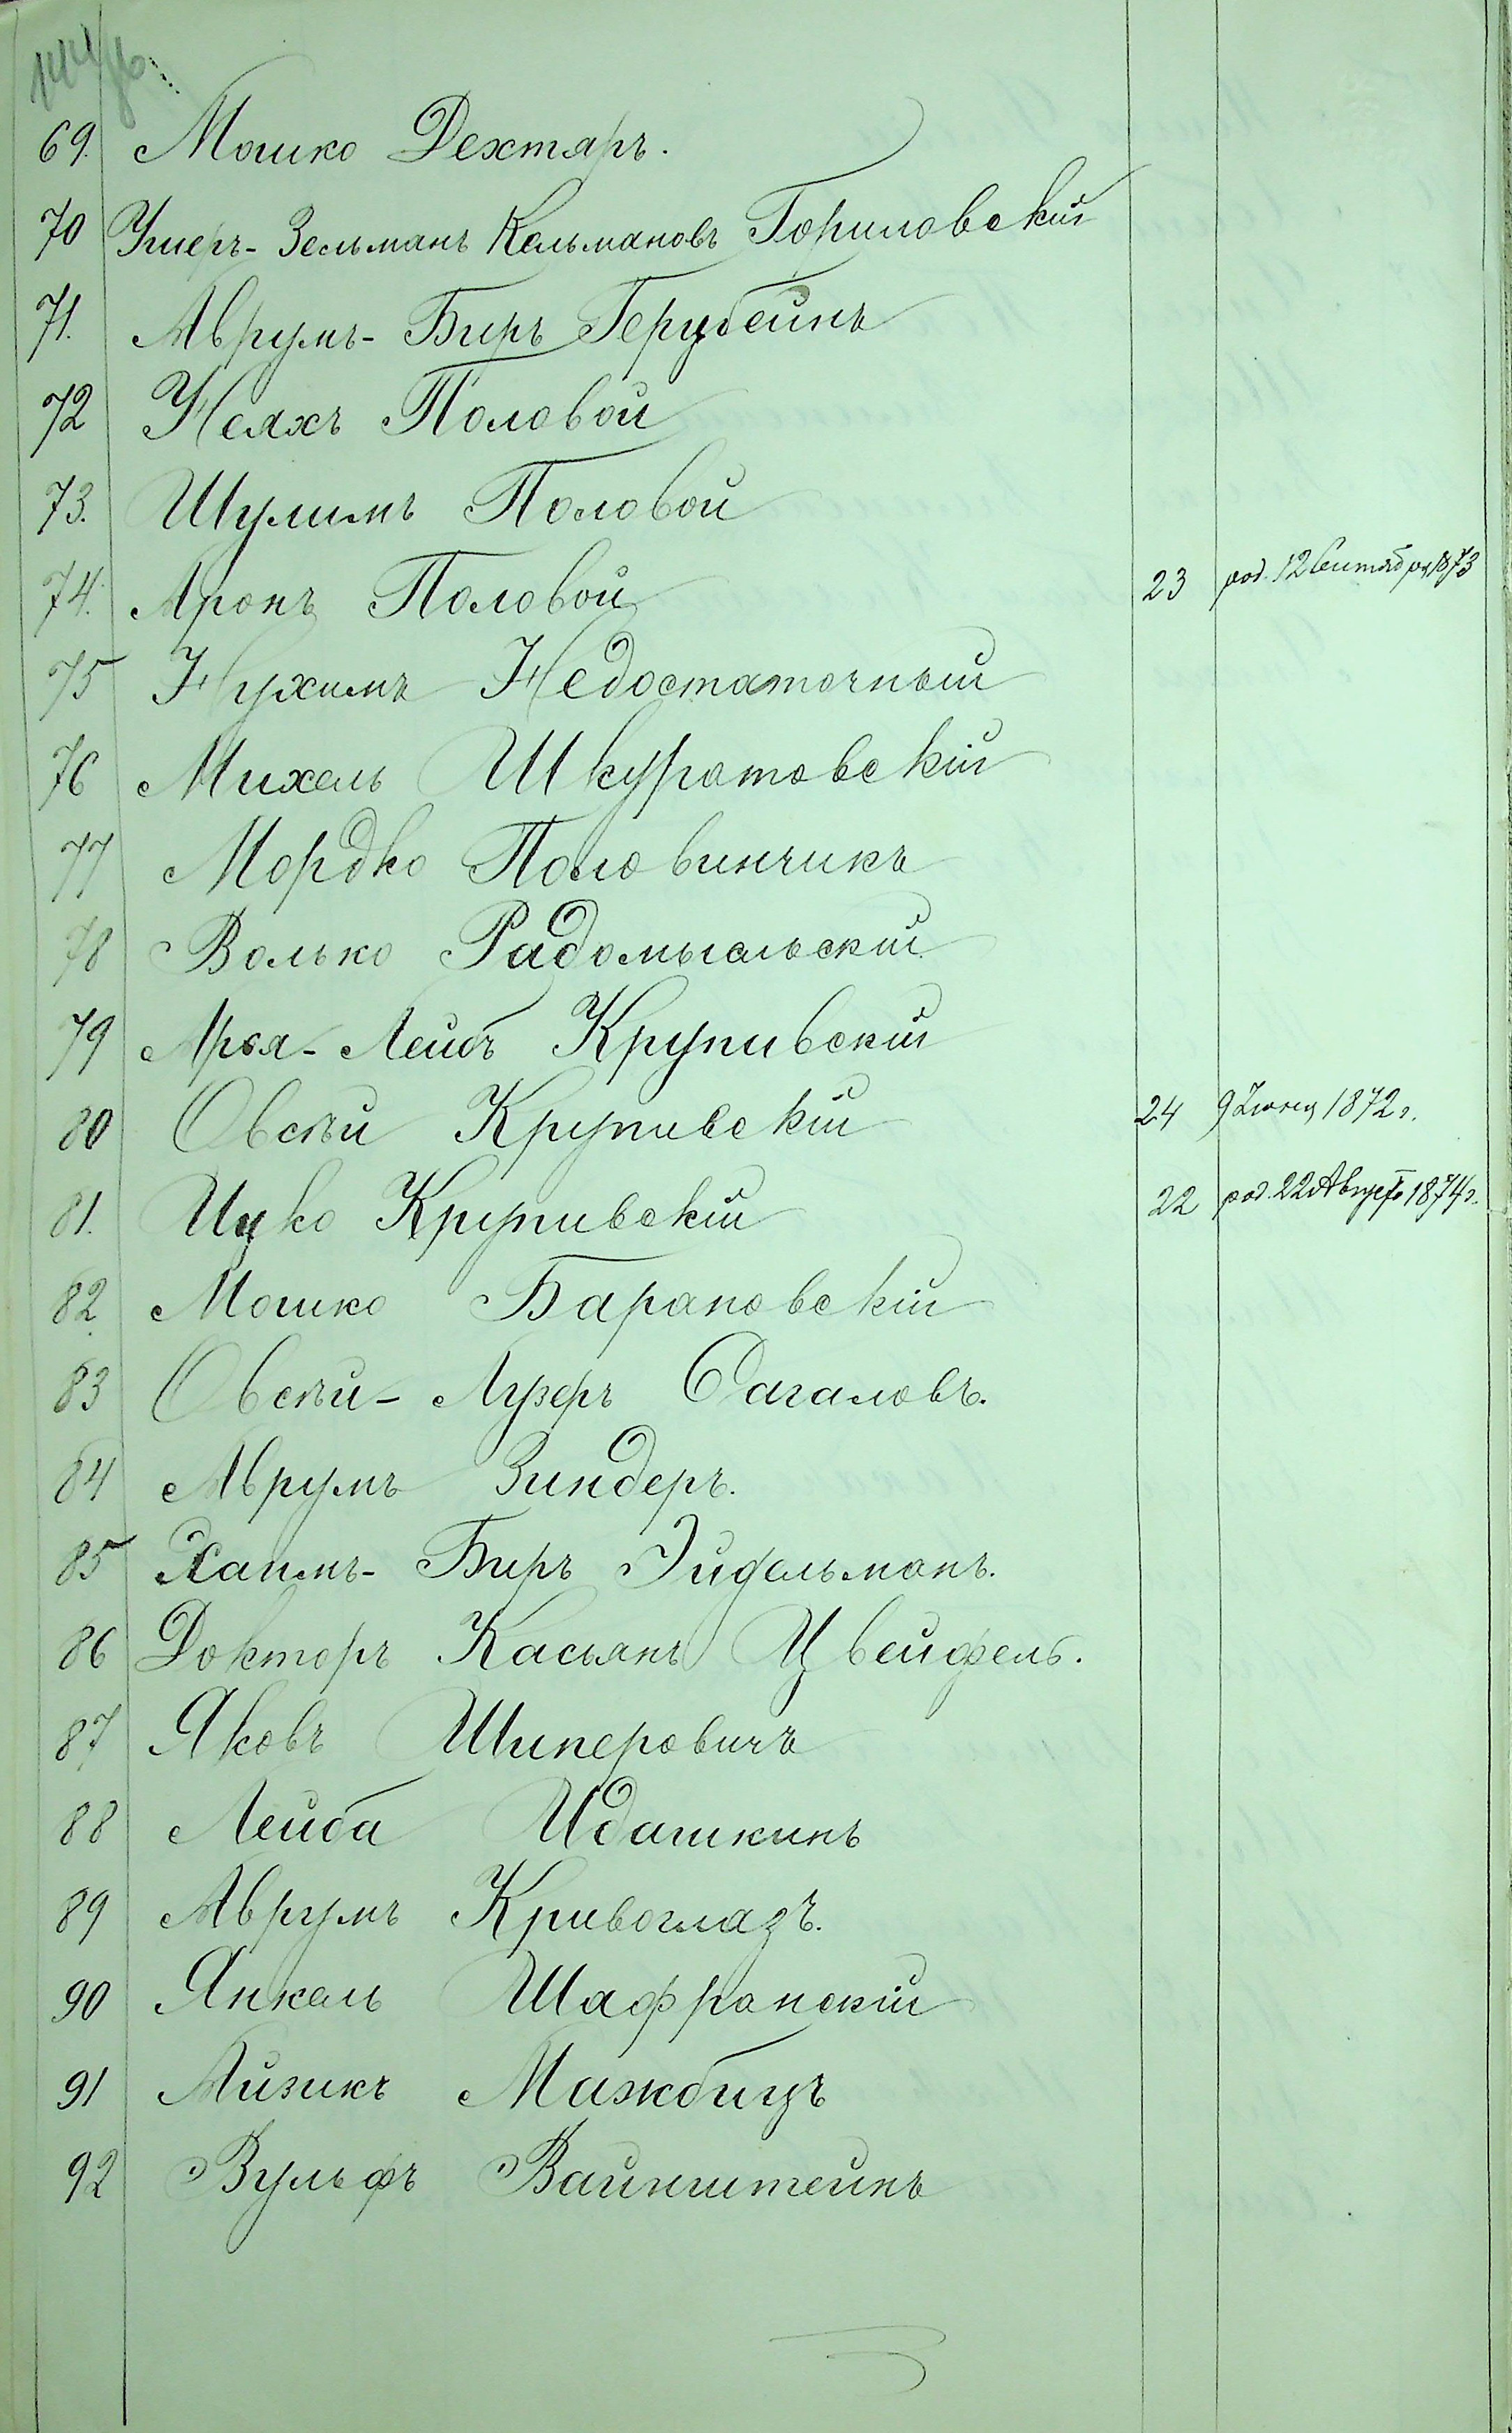 69. Мошко Дехтяръ.
70 Ушеръ-Зельманъ Кельмановъ Гориловскій
71. Аврумъ-Биръ Герцбейнъ
72 Неяхъ Половой
73. Шулимъ Половой
74. Аронъ Половой 23 род. 12 Сентября 1873
75 Нухимъ Недостаточный
76 Михель Шкуратовскій
77 Мордко Половинчикъ
78 Волько Радомысльскій
79 Арья-Лейбъ Крупивскій
80 Овсѣй Крупивскій 24 9 Іюня 1872 г.
81. Ицко Крупивскій 22 род. 22 Августа 1874 г.
82. Мошко Барановскій
83 Овсѣй-Лузеръ Сагаловъ.
84 Аврумъ Зиндеръ.
85 Хаимъ-Биръ Эйдельманъ.
86 Докторъ Касьянъ Цвейфель.
87 Яковъ Шиперовичъ
88 Лейба Идашкинъ
89 Аврумъ Кривоглазъ.
90 Янкель Шафранскій
91 Айзикъ Мажбицъ
92 Вульфъ Вайнштейнъ